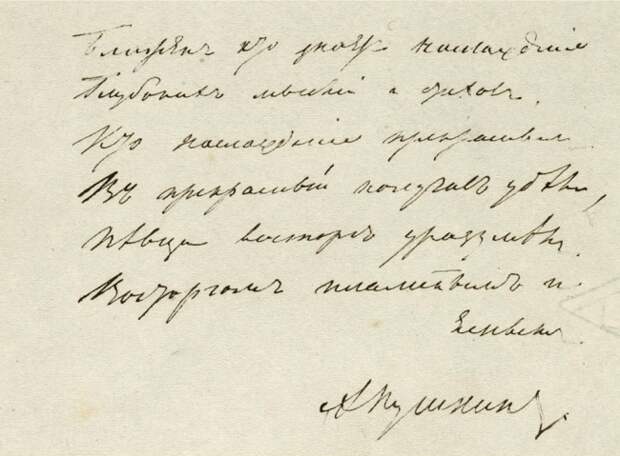 Блаженъ кто знаетъ наслажденіе
Глубокихъ мыслей и стиховъ.
Кто наслажденіе прекраснымъ
Въ прекрасный получилъ удѣлъ,
Пѣвца восторгъ уразумѣлъ
Восторгомъ пламеннымъ и
А Пушкинъ